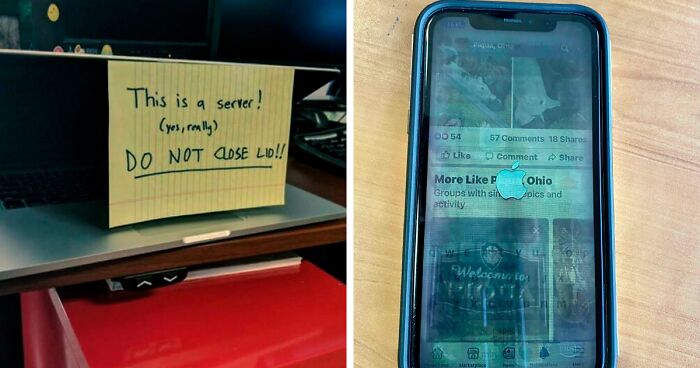 This is a server!
(yes, really)
DO NOT CLOSE LID!!
Piqua, Ohio
54
57 Comments 18 Shares
Like Comment Share
More Like Piqua, Ohio
Groups with similar topics and
activity
Welcome to
PIQUA
Marketplace